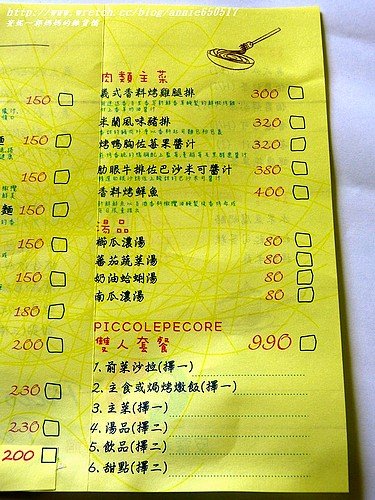 http://www.wretch.cc/blog/annie650517
肉類主菜
義式香料烤雞腿排 300
米蘭風味豬排 320
烤鴨胸佐莓果醬汁 320
肋眼牛排佐巴沙米可醬汁 380
香料烤鮮魚 400
湯品
櫛瓜濃湯 80
蕃茄蔬菜湯 80
奶油蛤蜊湯 80
南瓜濃湯 80
PICCOLEPECORE
雙人套餐 990
1. 前菜沙拉(擇一)
2. 主食或焗烤燉飯(擇一)
3. 主菜(擇一)
4. 湯品(擇二)
5. 飲品(擇二)
6. 甜點(擇二)
150
150
150
麵 150
150
150
180
200
230
230
200